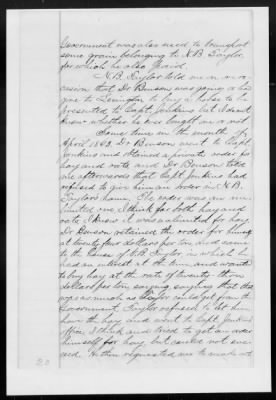 Government was also used to transport
some grain belonging to N.B. Taylor,
for which he also paid.
N.B. Taylor told me on one oc-
casion that Dr Benson was going or has
gone to Lexington to buy a horse to be
presented to Capt. Jenkins but I dont
know whether he was bought or not.
Some time in the month of
April 1863, Dr Benson went to Capt.
Jenkins and obtained a private order for
hay and oats and Dr Benson told
me afterwards that Capt Jenkins had
refused to give him an order in N.B.
Taylor's name. The order was an un-
limited one, I think for both hay and
oats, I know it was unlimited for hay.
Dr Benson retained the order for hay
at twenty four dollars per ton, and came
to the house of N.B. Taylor in which he
had an interest at the time, and wanted
to buy hay at the rate of twenty two
dollars per ton, saying that this
was as much as Taylor could get from the
Government. Taylor refused to let him
have the hay and went to Capt Jenkins
office, I think and tried to get an order
himself for hay, but could not suc-
ceed. He then requested me to make out
20